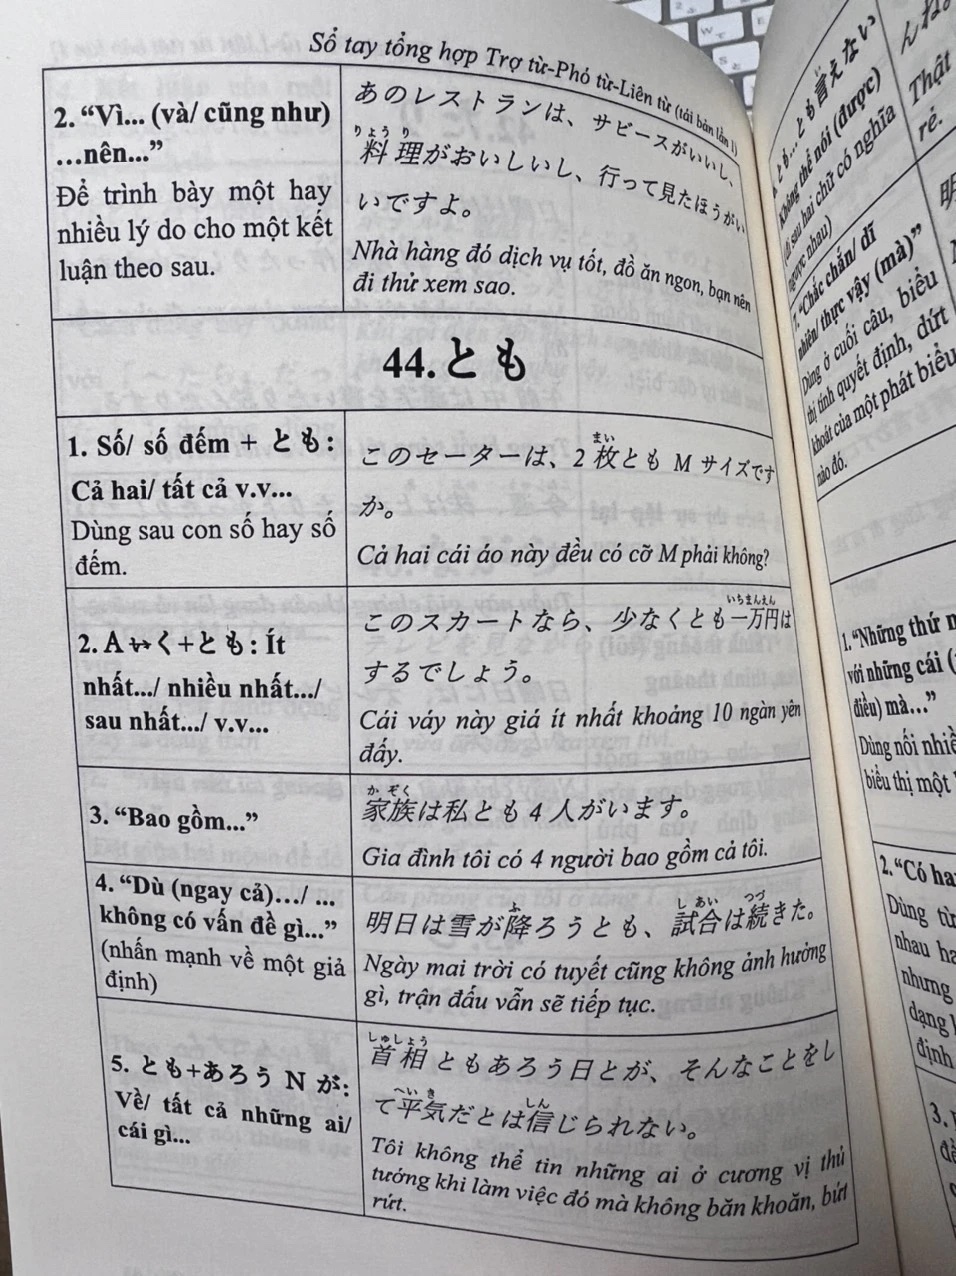 Sổ tay tổng hợp Trợ từ-Phó từ-Liên từ (tái bản lần 1)
2. “Vì... (và/ cũng như)
...nên...”
Để trình bày một hay
nhiều lý do cho một kết
luận theo sau.
あのレストランは、サビースがいいし、
りょう り
料理がおいしいし、行って見たほうがい
いですよ。
Nhà hàng đó dịch vụ tốt, đồ ăn ngon, bạn nên
đi thử xem sao.
44.とも
1. Số/ số đếm + とも:
Cả hai/ tất cả v.v...
Dùng sau con số hay số
đếm.
まい
このセーターは、2 枚とも M サイズです
か。
Cả hai cái áo này đều có cỡ M phải không?
2. A いく+とも: Ít
nhất.../ nhiều nhất.../
sau nhất.../ v.v...
いちまんえん
このスカートなら、少なくとも一万円は
するでしょう。
Cái váy này giá ít nhất khoảng 10 ngàn yên
đấy.
3. “Bao gồm...”
か ぞく
家族は私とも 4 人がいます。
Gia đình tôi có 4 người bao gồm cả tôi.
4. “Dù (ngay cả).../ ...
không có vấn đề gì...”
(nhấn mạnh về một giả
định)
ふ し あい つづ
明日は雪が降ろうとも、試合は続きた。
Ngày mai trời có tuyết cũng không ảnh hưởng
gì, trận đấu vẫn sẽ tiếp tục.
5. とも+あろう N が:
Về/ tất cả những ai/
cái gì...
しゅしょう
首相ともあろう日とが、そんなことをし
へい き しん
て平気だとは信じられない。
Tôi không thể tin những ai ở cương vị thủ
tướng khi làm việc đó mà không băn khoăn, bứt
rứt.
とも... とも言えない
Không thể nói (được)
(đi sau hai chữ có nghĩa
ngược nhau)
Thật
rẻ.
7. “Chắc chắn/ dĩ
nhiên/ thực vậy (mà)”
Dùng ở cuối câu, biểu
thị tính quyết định, dứt
khoát của một phát biểu
nào đó.
明
1. “Những thứ
với những cái
điều) mà...”
Dùng nối
biểu thị một
2. “Có
Dùng từ
nhau
nhưng
dạng
định
3.